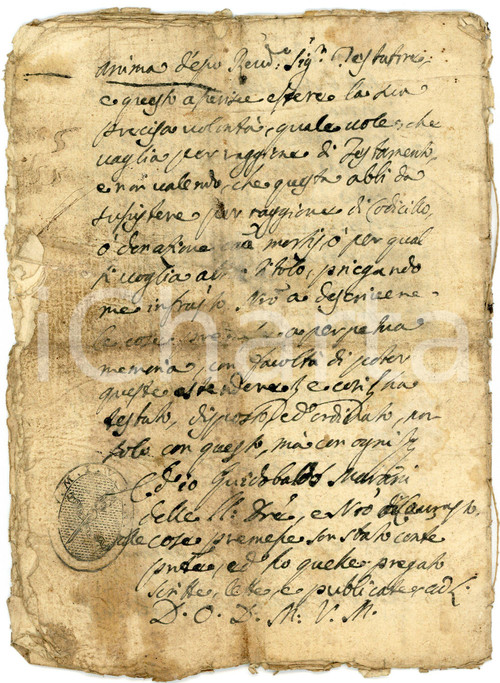 anima d'esso Rev:do Sig:r Testatore;
e questo asserisce essere la sua
precisa volontà, quale vole, che
vaglia per raggione di Testamento,
e non valendo, che questa abbi da
susistere per raggione di Codicillo,
ò donazione caũa mortis, ò per qual
si voglia altro titolo, pregando
me infrasto Nro à descrivere
le cose a perpetua
memoria, con facoltà di poter
queste estendere & e così hà
testato, disposto, ed ordinato, non
solo con questo, mà con ogni &
Ed io Guidobaldo Marani
delle Nro
alle cose premesse son stato
pnte, ed hò quelle pregato
scritte, lette, e publicate ad L.
D. O. D. M. V. M.
iCharta